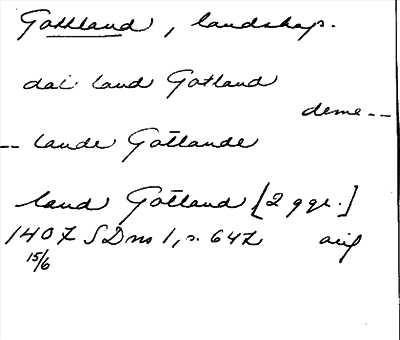 Gottland, landskap.
dat land Gotland
deme --
-- lande Gotlande
land Gotland [2 ggr.]
1407 SDns 1, s. 647
15/6